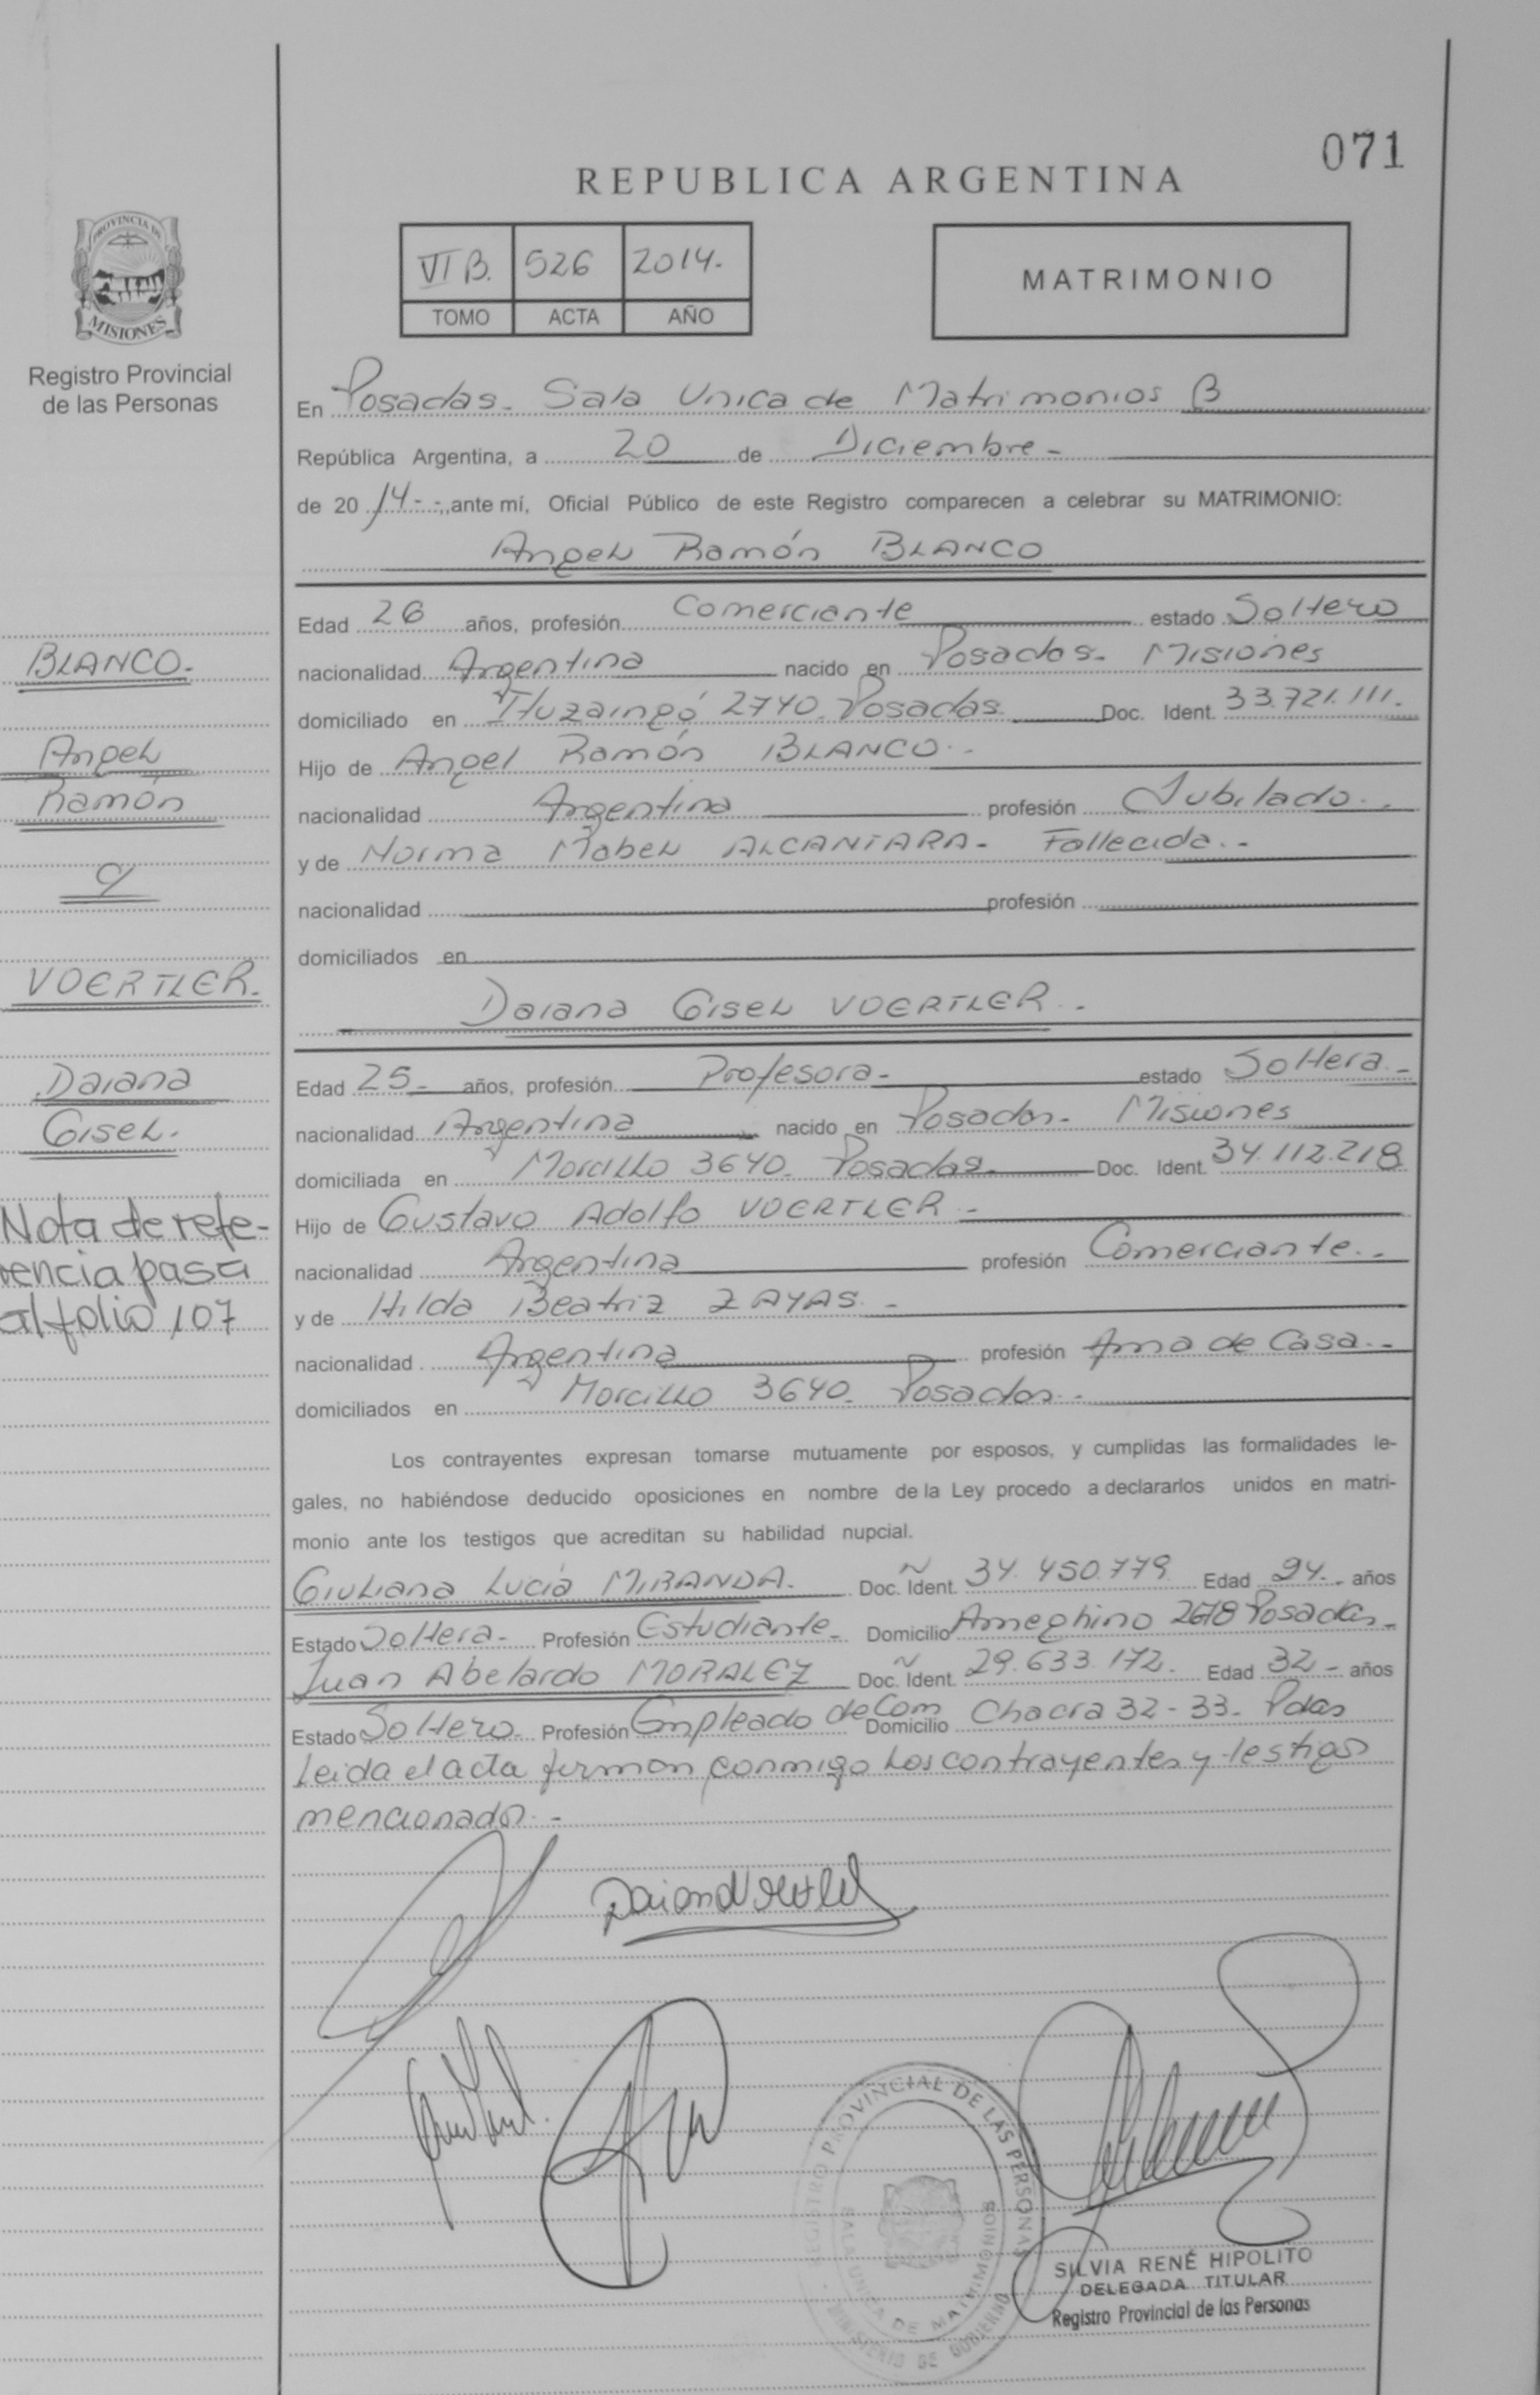 071
REPUBLICA ARGENTINA
PROVINCIA DE
MISIONES
Registro Provincial
de las Personas
VI B. 526 2014.-
TOMO ACTA AÑO
MATRIMONIO
En Posadas - Sala Unica de Matrimonios B
República Argentina, a 20 de Diciembre -
de 20 14 - ante mí, Oficial Público de este Registro comparecen a celebrar su MATRIMONIO:
Angel Ramón BLANCO
Edad 26 años, profesión Comerciante estado Soltero
nacionalidad Argentina nacido en Posadas - Misiones
domiciliado en Ituzaingó 2740. Posadas Doc. Ident. 33.721.111.
Hijo de Angel Ramón BLANCO.-
nacionalidad Argentina profesión Jubilado.-
y de Norma Mabel ALCANTARA - Fallecida.-
nacionalidad profesión
domiciliados en
Daiana Gisel VOERTLER.-
Edad 25 - años, profesión Profesora - estado Soltera.-
nacionalidad Argentina nacido en Posadas - Misiones
domiciliada en Morcillo 3640 - Posadas - Doc. Ident. 34.112.218
Hijo de Gustavo Adolfo VOERTLER.-
nacionalidad Argentina profesión Comerciante.-
y de Hilda Beatriz ZAYAS.-
nacionalidad Argentina profesión Ama de Casa.-
domiciliados en Morcillo 3640 - Posadas.-
Los contrayentes expresan tomarse mutuamente por esposos, y cumplidas las formalidades le-
gales, no habiéndose deducido oposiciones en nombre de la Ley procedo a declararlos unidos en matri-
monio ante los testigos que acreditan su habilidad nupcial.
Giuliana Lucía MIRANDA. Doc. Ident. 34.450.779 Edad 24. años
Estado Soltera - Profesión Estudiante - Domicilio Ameghino 2678 Posadas -
Juan Abelardo MORALEZ Doc. Ident. 29.633.172. Edad 32 - años
Estado Soltero - Profesión Empleado de Com Domicilio Chacra 32-33 - Pdas
Leida el acta firman conmigo los contrayentes y testigos
mencionados.-
BLANCO.-
Angel
Ramón
c/
VOERTLER.
Daiana
Gisel.
Nota de refe-
rencia pasa
al folio 107
REGISTRO PROVINCIAL DE LAS PERSONAS
SALA UNICA DE MATRIMONIOS
MINISTERIO DE GOBIERNO
SILVIA RENÉ HIPOLITO
DELEGADA TITULAR
Registro Provincial de las Personas